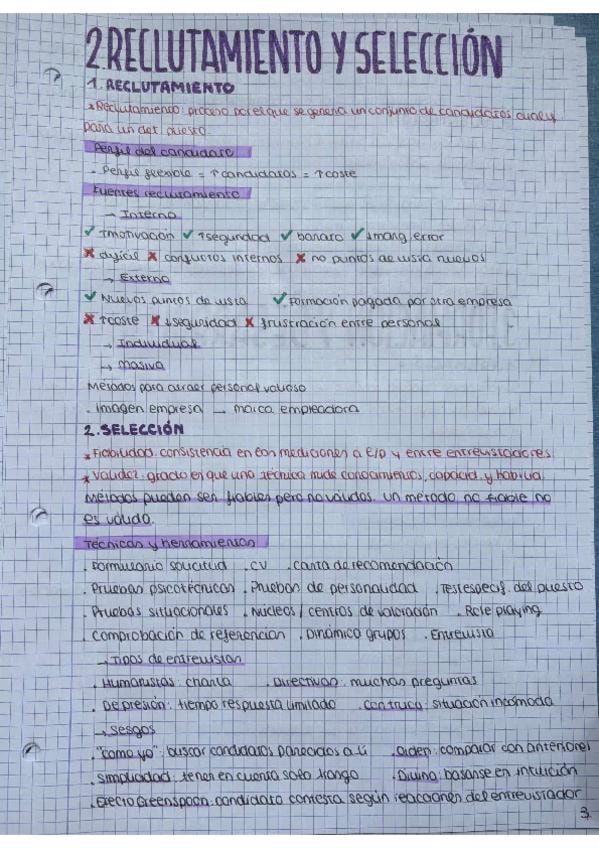 2.RECLUTAMIENTO Y SELECCIÓN
1. RECLUTAMIENTO
* Reclutamiento: proceso por el que se genera un conjunto de candidatos cualif.
para un det. puesto.
Perfil del candidato
- Perfil flexible = ↑candidatos = ↑coste
Fuentes reclutamiento
→ Interno
✓ ↑motivación ✓ ↑seguridad ✓ barato ✓ ↓marg. error
✗ difícil ✗ conflictos internos ✗ no puntos de vista nuevos
→ Externo
✓ Nuevos puntos de vista ✓ Formación pagada por otra empresa
✗ ↑coste ✗ ↓seguridad ✗ frustración entre personal
→ Individual
→ Masiva
Métodos para atraer personal valioso
. imagen empresa → marca empleadora
2. SELECCIÓN
* Fiabilidad: consistencia en mediciones a y entre entrevistadores
* Validez: grado en que una técnica mide conocimientos, capacid. y habilid.
Métodos pueden ser fiables pero no válidos. Un método no fiable no
es válido.
Técnicas y herramientas
. Formulario solicitud . CV . Carta de recomendación
. Pruebas psicotécnicas . Pruebas de personalidad . Test especif. del puesto
. Pruebas situacionales . Núcleos / centros de valoración . Role playing
. Comprobación de referencias . Dinámica grupos . Entrevista
→ Tipos de entrevistas
. Humanistas: charla . Directivas: muchas preguntas
. De presión: tiempo respuesta limitado . Con truco: situación incómoda
→ Sesgos
. "Como yo": buscar candidatos parecidos a ti . Orden: comparar con anteriores
. Simplicidad: tener en cuenta solo 1 rasgo . Divino: basarse en intuición
. Efecto Greenspoon: candidato contesta según reacciones del entrevistador
3